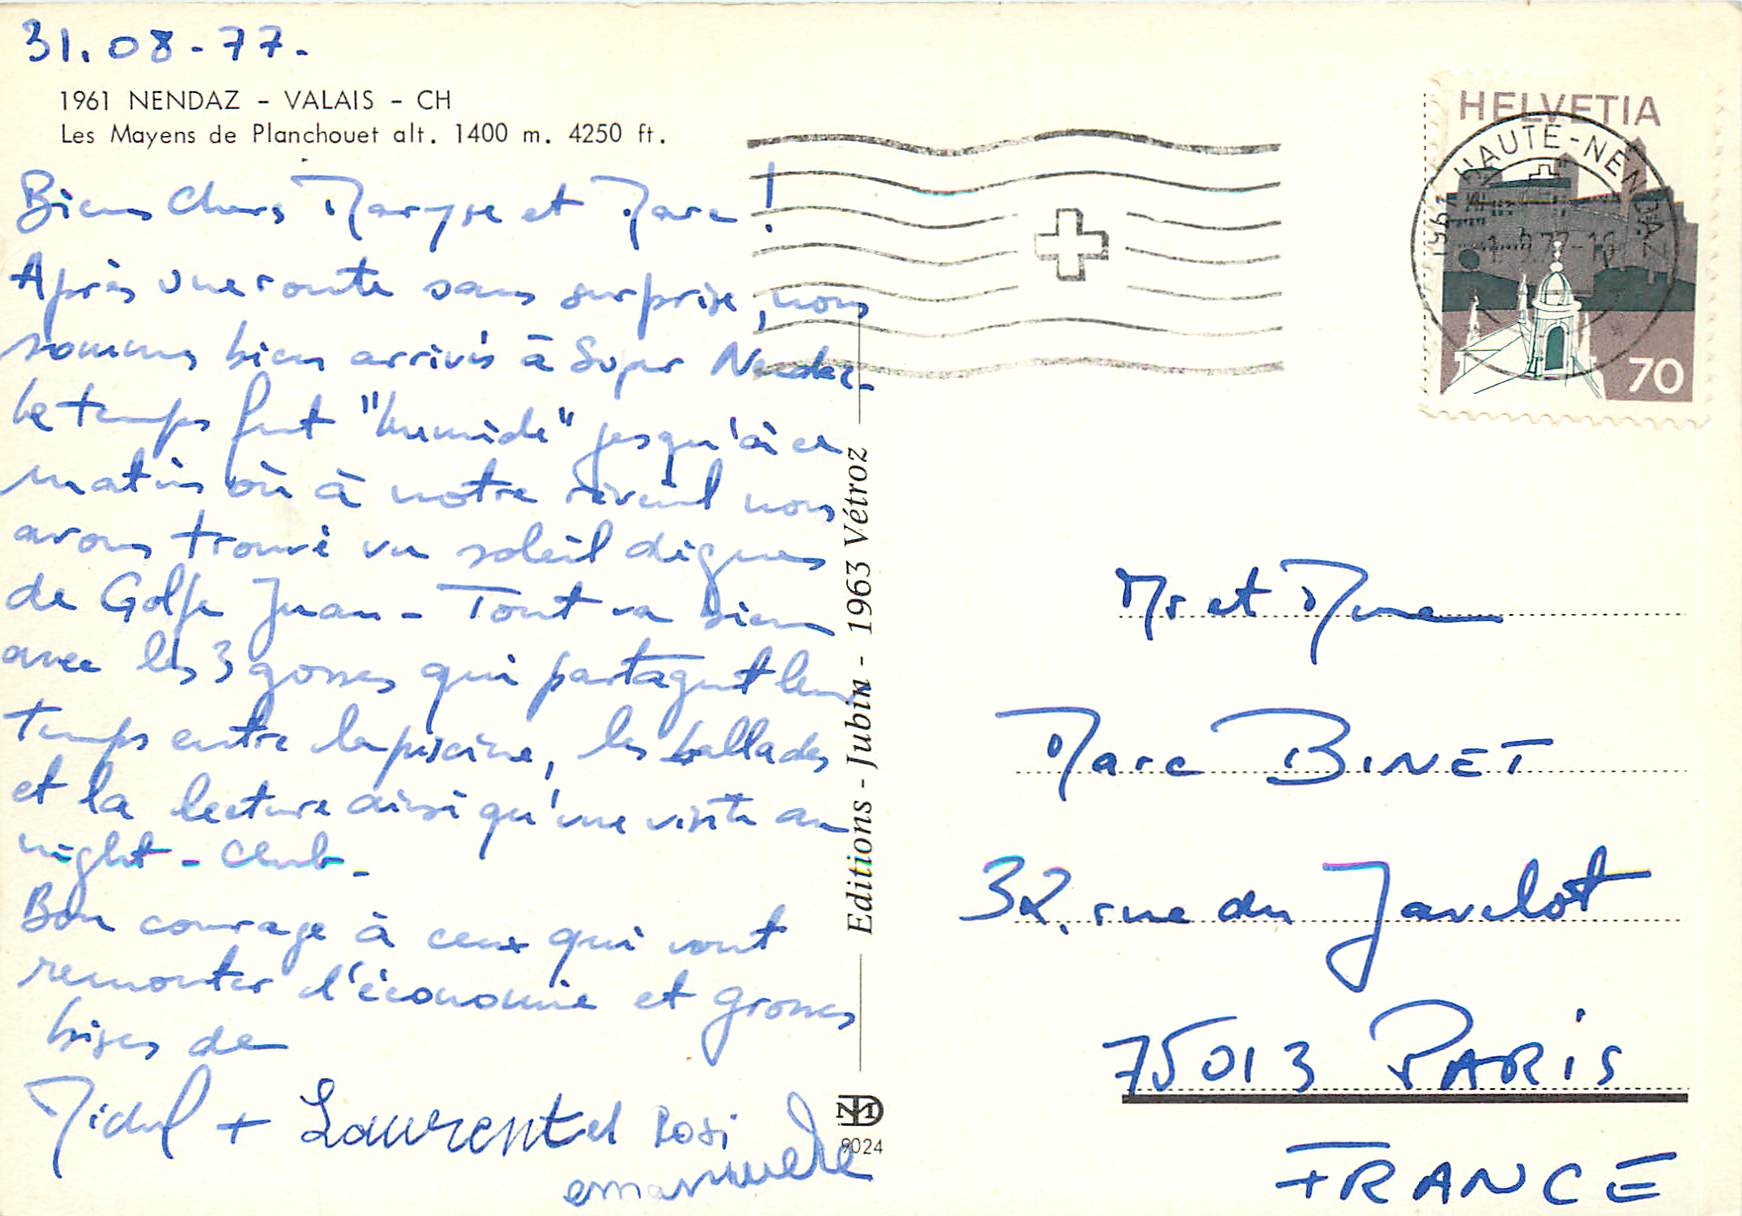 31.08-77-
1961 NENDAZ - VALAIS - CH
Les Mayens de Planchouet alt. 1400 m. 4250 ft.
Biens Chers Maryse et Marc !
Après une route sans surprise, nous
sommes bien arrivés à Super Nendaz.
Le temps fut "humide" jusqu'à ce
matin où à notre réveil nous
avons trouvé un soleil dignes
de Golfe Juan - Tout va bien
avec les 3 gosses qui partagent leur
temps entre la piscine, les ballades
et la lecture ainsi qu'une visite au
night-club-
Bon courage à ceux qui vont
remonter l'économie et grosses
bises de
Michel + Laurent et Rosi
emanuele
Editions - Jubin - 1963 Vétroz
9024
HELVETIA
1961 HAUTE-NENDAZ
70
Mr et Mme
Marc BINET
32, rue du Javelot
75013 PARIS
FRANCE